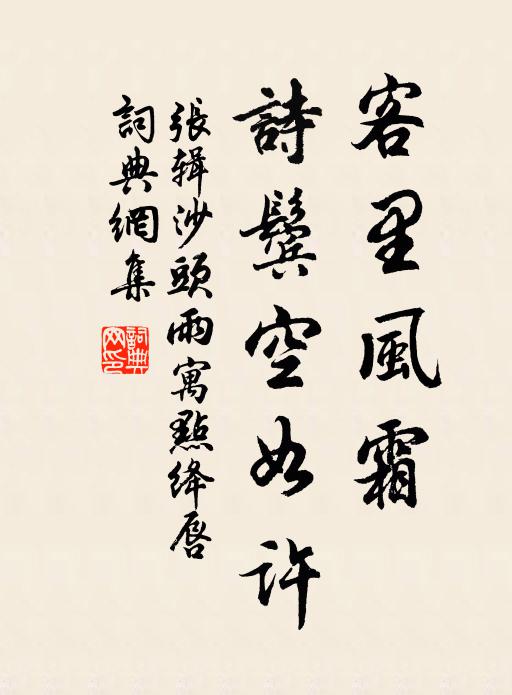 客里風霜
詩鬢空如許
張辑沙頭雨寓點绛唇
詞典網集
詞典网印